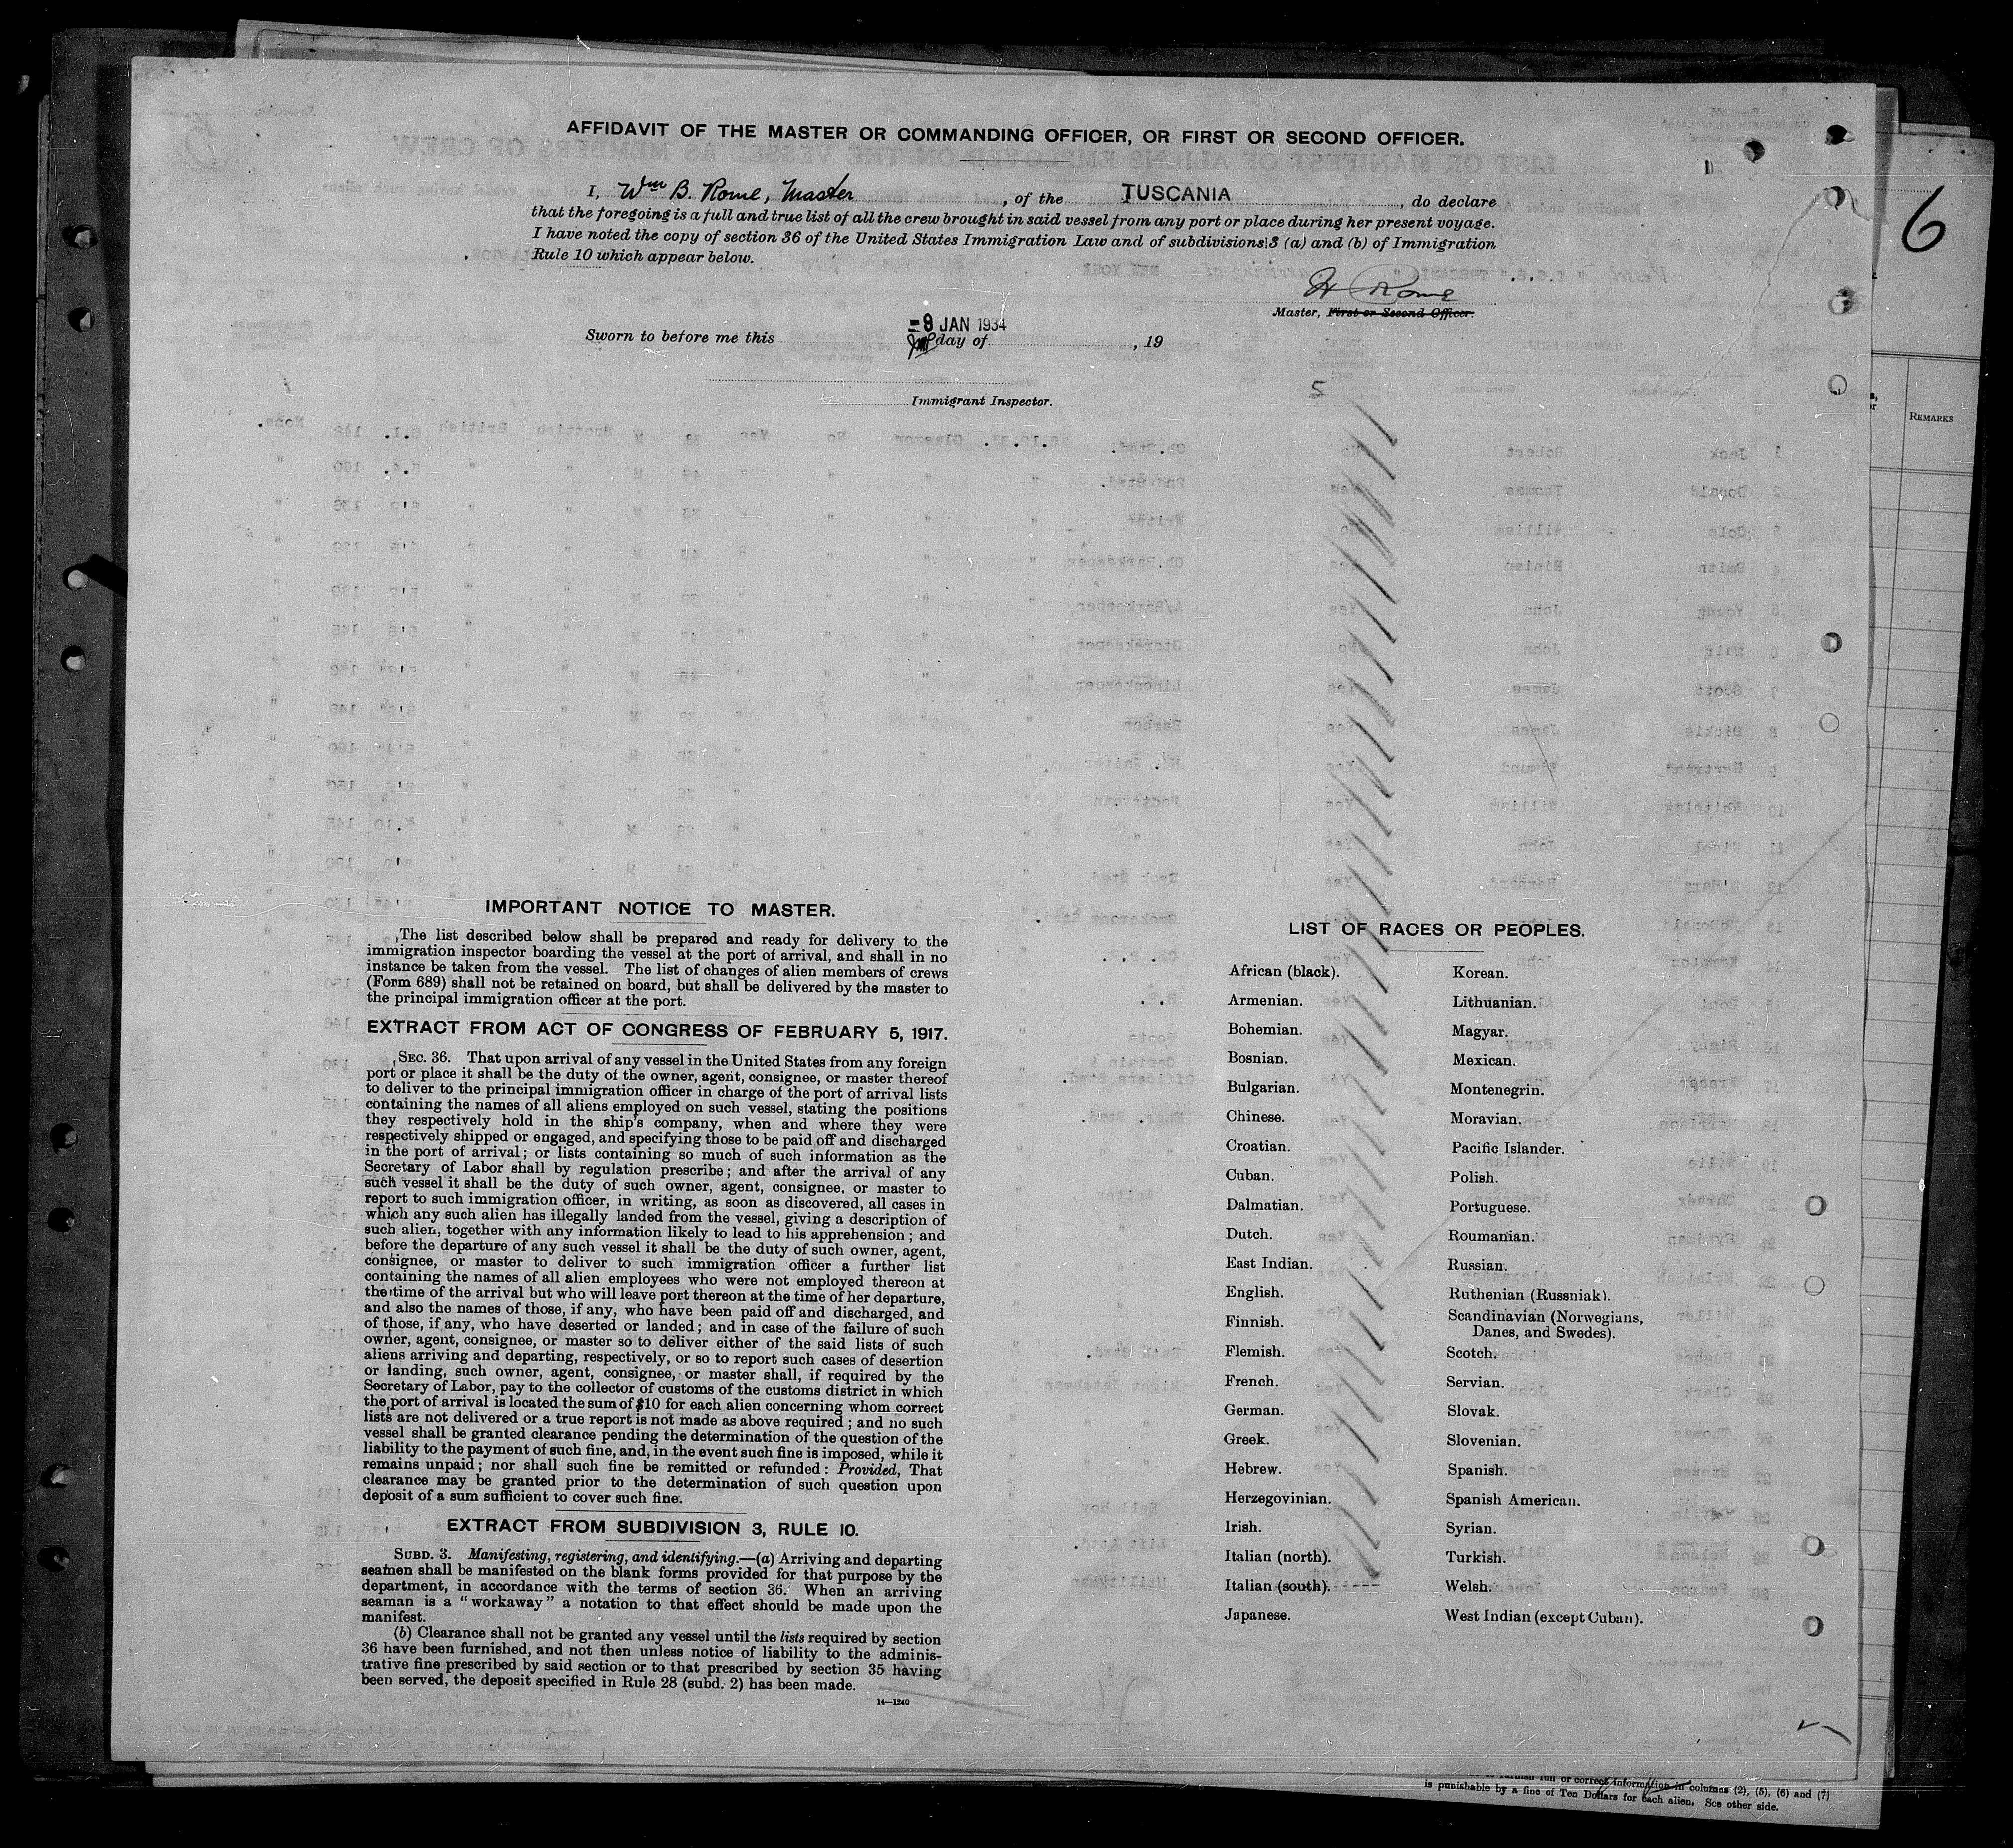 AFFIDAVIT OF THE MASTER OR COMMANDING OFFICER, OR FIRST OR SECOND OFFICER.
I, Wm B. Rome, Master, of the TUSCANIA, do declare
that the foregoing is a full and true list of all the crew brought in said vessel from any port or place during her present voyage.
I have noted the copy of section 36 of the United States Immigration Law and of subdivisions 3 (a) and (b) of Immigration
Rule 10 which appear below.
6
Rome
Master, First or Second Officer.
-9 JAN 1934
Sworn to before me this day of , 19
5
Immigrant Inspector.
REMARKS
IMPORTANT NOTICE TO MASTER.
The list described below shall be prepared and ready for delivery to the
immigration inspector boarding the vessel at the port of arrival, and shall in no
instance be taken from the vessel. The list of changes of alien members of crews
(Form 689) shall not be retained on board, but shall be delivered by the master to
the principal immigration officer at the port.
EXTRACT FROM ACT OF CONGRESS OF FEBRUARY 5, 1917.
SEC. 36. That upon arrival of any vessel in the United States from any foreign
port or place it shall be the duty of the owner, agent, consignee, or master thereof
to deliver to the principal immigration officer in charge of the port of arrival lists
containing the names of all aliens employed on such vessel, stating the positions
they respectively hold in the ship's company, when and where they were
respectively shipped or engaged, and specifying those to be paid off and discharged
in the port of arrival; or lists containing so much of such information as the
Secretary of Labor shall by regulation prescribe; and after the arrival of any
such vessel it shall be the duty of such owner, agent, consignee, or master to
report to such immigration officer, in writing, as soon as discovered, all cases in
which any such alien has illegally landed from the vessel, giving a description of
such alien, together with any information likely to lead to his apprehension; and
before the departure of any such vessel it shall be the duty of such owner, agent,
consignee, or master to deliver to such immigration officer a further list
containing the names of all alien employees who were not employed thereon at
the time of the arrival but who will leave port thereon at the time of her departure,
and also the names of those, if any, who have been paid off and discharged, and
of those, if any, who have deserted or landed; and in case of the failure of such
owner, agent, consignee, or master so to deliver either of the said lists of such
aliens arriving and departing, respectively, or so to report such cases of desertion
or landing, such owner, agent, consignee, or master shall, if required by the
Secretary of Labor, pay to the collector of customs of the customs district in which
the port of arrival is located the sum of $10 for each alien concerning whom correct
lists are not delivered or a true report is not made as above required; and no such
vessel shall be granted clearance pending the determination of the question of the
liability to the payment of such fine, and, in the event such fine is imposed, while it
remains unpaid; nor shall such fine be remitted or refunded: Provided, That
clearance may be granted prior to the determination of such question upon
deposit of a sum sufficient to cover such fine.
EXTRACT FROM SUBDIVISION 3, RULE 10.
SUBD. 3. Manifesting, registering, and identifying.—(a) Arriving and departing
seamen shall be manifested on the blank forms provided for that purpose by the
department, in accordance with the terms of section 36. When an arriving
seaman is a "workaway" a notation to that effect should be made upon the
manifest.
(b) Clearance shall not be granted any vessel until the lists required by section
36 have been furnished, and not then unless notice of liability to the adminis-
trative fine prescribed by said section or to that prescribed by section 35 having
been served, the deposit specified in Rule 28 (subd. 2) has been made.
14—1240
LIST OF RACES OR PEOPLES.
African (black).
Armenian.
Bohemian.
Bosnian.
Bulgarian.
Chinese.
Croatian.
Cuban.
Dalmatian.
Dutch.
East Indian.
English.
Finnish.
Flemish.
French.
German.
Greek.
Hebrew.
Herzegovinian.
Irish.
Italian (north).
Italian (south).
Japanese.
Korean.
Lithuanian.
Magyar.
Mexican.
Montenegrin.
Moravian.
Pacific Islander.
Polish.
Portuguese.
Roumanian.
Russian.
Ruthenian (Russniak).
Scandinavian (Norwegians,
Danes, and Swedes).
Scotch.
Servian.
Slovak.
Slovenian.
Spanish.
Spanish American.
Syrian.
Turkish.
Welsh.
West Indian (except Cuban).
full or correct information in columns (2), (5), (6) and (7)
is punishable by a fine of Ten Dollars for each alien. See other side.